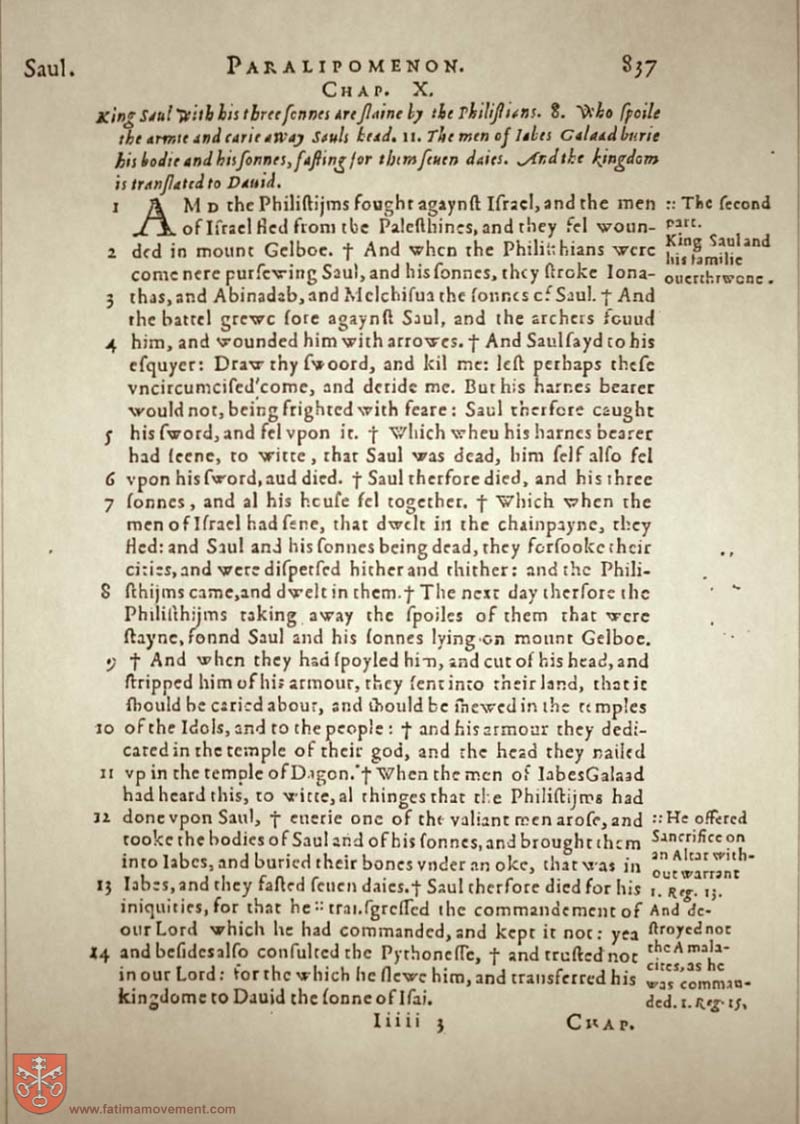 Saul. PARALIPOMENON. 837
CHAP. X.
King Saul with his three sonnes are slaine by the Philistians. 8. Who spoile
the armie and carie away Sauls head. 11. The men of Iabes Galaad burie
his bodie and his sonnes, fasting for them seuen daies. And the kingdom
is translated to Dauid.
1 AMD the Philistijms fought agaynst Israel, and the men
of Israel fled from the Palesthines, and they fel woun-
2 ded in mount Gelboe. † And when the Philisthians were
come nere pursewing Saul, and his sonnes, they stroke Iona-
3 thas, and Abinadab, and Melchisua the sonnes of Saul. † And
the battel grewe sore agaynst Saul, and the archers fouud
4 him, and wounded him with arrowes. † And Saul sayd to his
esquyer: Draw thy swoord, and kil me: lest perhaps these
vncircumcised come, and deride me. But his harnes bearer
would not, being frighted with feare: Saul therfore caught
5 his sword, and fel vpon it. † Which wheu his harnes bearer
had seene, to witte, that Saul was dead, him self also fel
6 vpon his sword, aud died. † Saul therfore died, and his three
7 sonnes, and al his house fel together. † Which when the
men of Israel had sene, that dwelt in the chainpayne, they
fled: and Saul and his sonnes being dead, they forsooke their
cities, and were dispersed hither and thither: and the Phili-
8 sthijms came, and dwelt in them. † The next day therfore the
Philisthijms taking away the spoiles of them that were
slayne, fonnd Saul and his sonnes lying on mount Gelboe.
9 † And when they had spoyled him, and cut of his head, and
stripped him of his armour, they sent into their land, that it
should be caried about, and should be shewed in the temples
10 of the Idols, and to the people: † and his armour they dedi-
cated in the temple of their god, and the head they nailed
11 vp in the temple of Dagon. † When the men of Iabes Galaad
had heard this, to witte, al thinges that the Philistijms had
12 done vpon Saul, † euerie one of the valiant men arose, and
tooke the bodies of Saul and of his sonnes, and brought them
into Iabes, and buried their bones vnder an oke, that was in
13 Iabes, and they fasted seuen daies. † Saul therfore died for his
iniquities, for that he :: transgressed the commandement of
our Lord which he had commanded, and kept it not: yea
14 and besides also consulted the Pythonesse, † and trusted not
in our Lord: for the which he slewe him, and transferred his
kingdome to Dauid the sonne of Isai.
Iiiii 3 CHAP.
:: The second
part.
King Saul and
his familie
ouerthrwone.
:: He offered
Sancrifice on
an Altar with-
out warrant
1. Reg. 13.
And de-
stroyed not
the Amala-
cites, as he
was comman-
ded. 1. Reg. 15,
www.fatimamovement.com